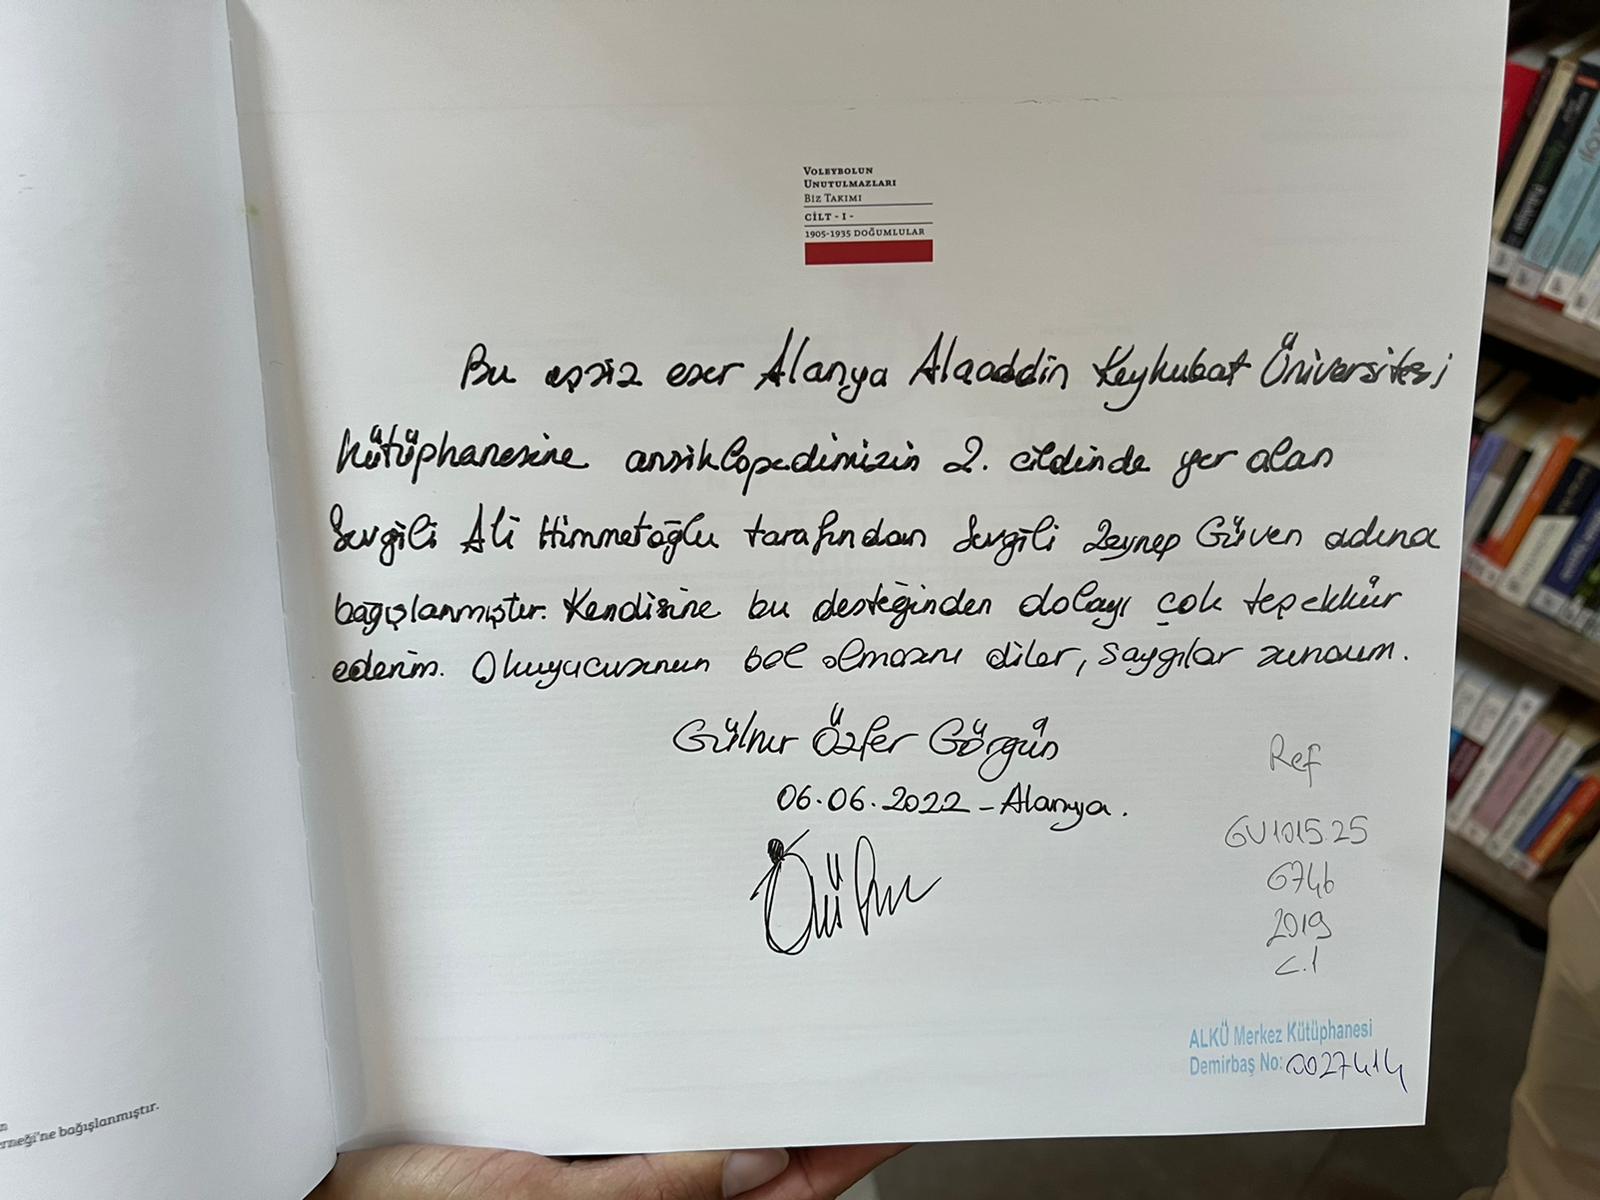 VOLEYBOLUN
UNUTULMAZLARI
BİZ TAKIMI
CİLT - I -
1905-1935 DOĞUMLULAR
Bu eşsiz eser Alanya Alaaddin Keykubat Üniversitesi
Kütüphanesine ansiklopedimizin 2. cildinde yer alan
Sevgili Ali Himmetoğlu tarafından Sevgili Zeynep Güven adına
bağışlanmıştır. Kendisine bu desteğinden dolayı çok teşekkür
ederim. Okuyucusunun bol olmasını diler, saygılar sunarım.
Gülnur Özfer Görgün
06.06.2022 - Alanya.
Ref
GV1015.25
G746
2019
C.1
ALKÜ Merkez Kütüphanesi
Demirbaş No: 0027414
rneği'ne bağışlanmıştır.